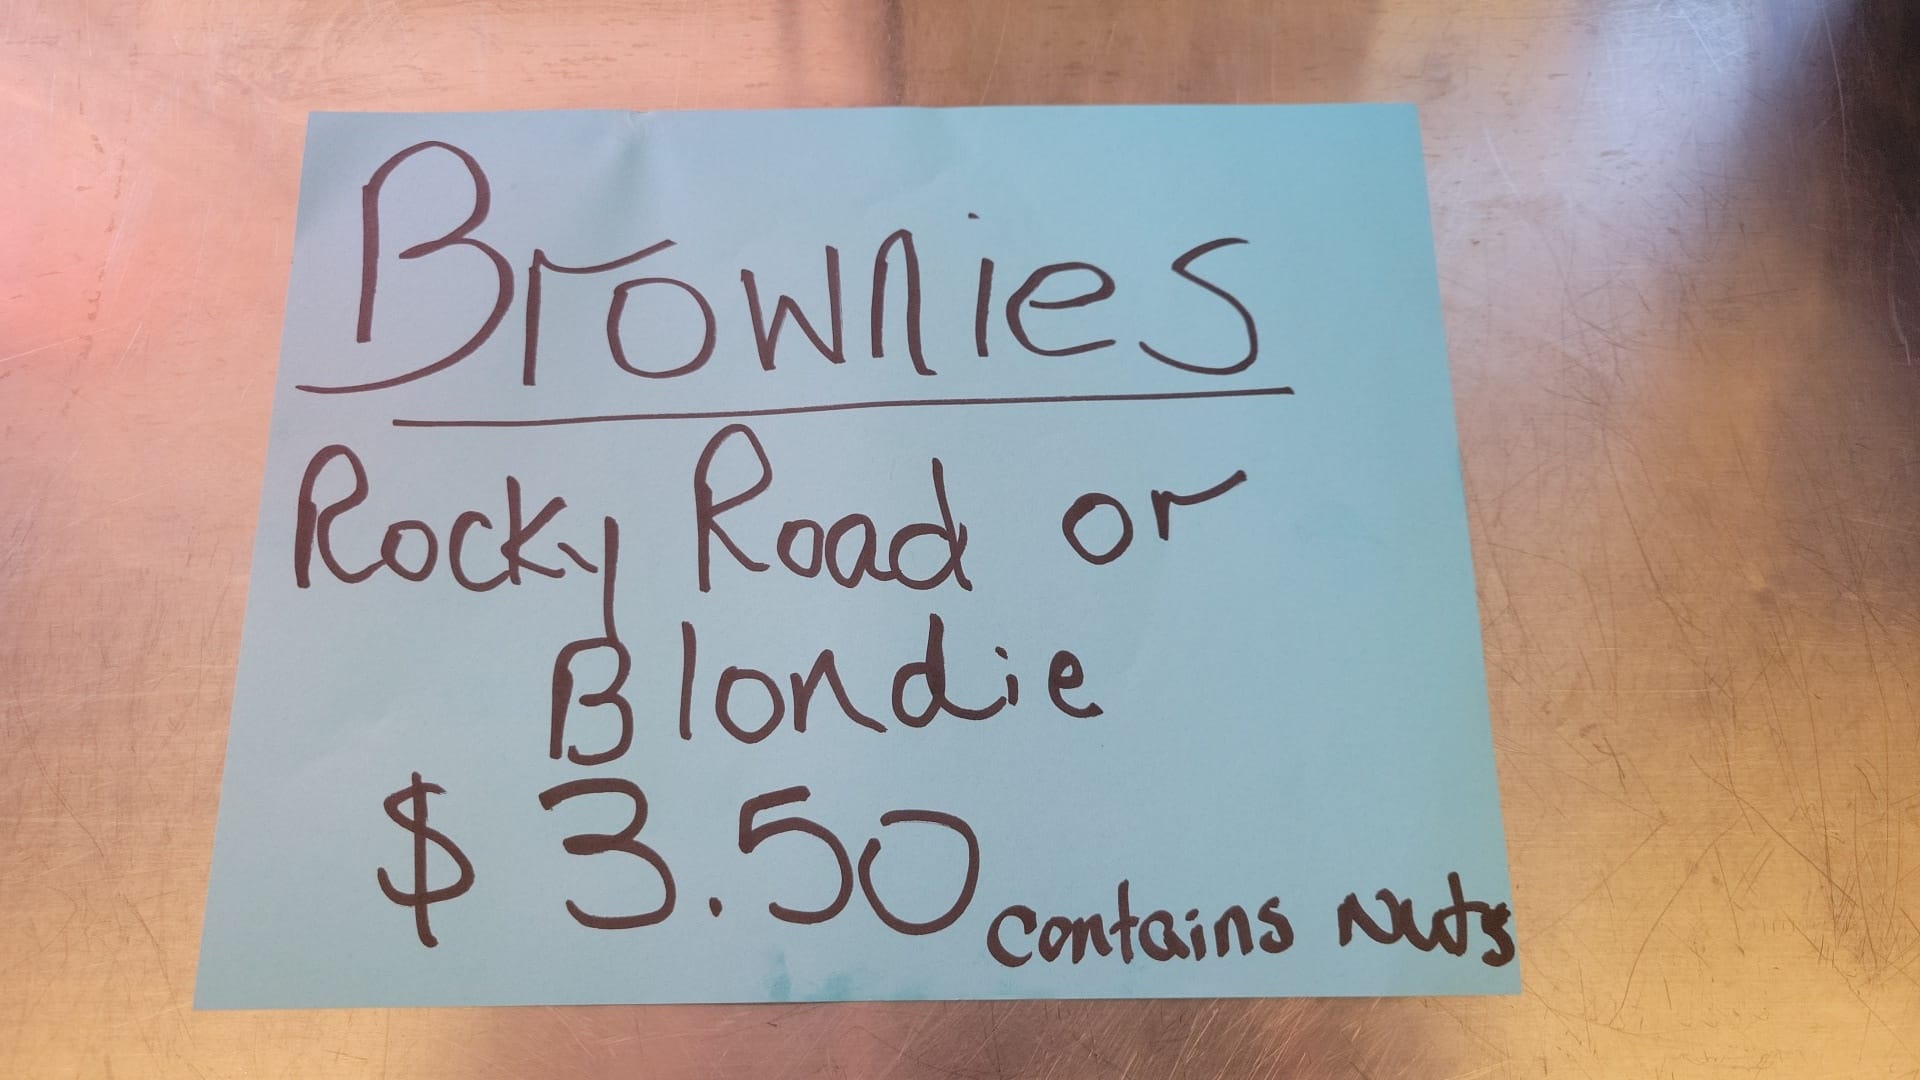 Brownies
Rocky Road or
Blondie
$3.50 contains Nuts